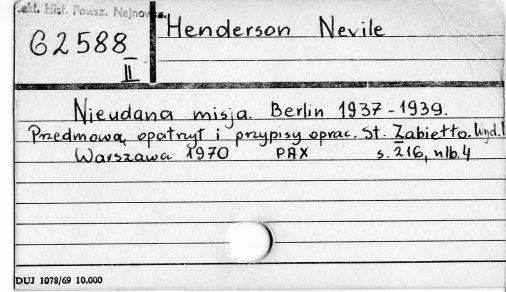 Zakł. Hist. Powsz. Najnow
62588
II
Henderson Nevile
Nieudana misja. Berlin 1937-1939.
Przedmową opatrzył i przypisy oprac. St. Zabiełło. Wyd. 1
Warszawa 1970 PAX s. 216, nlb. 4
DUJ 1078/69 10.000